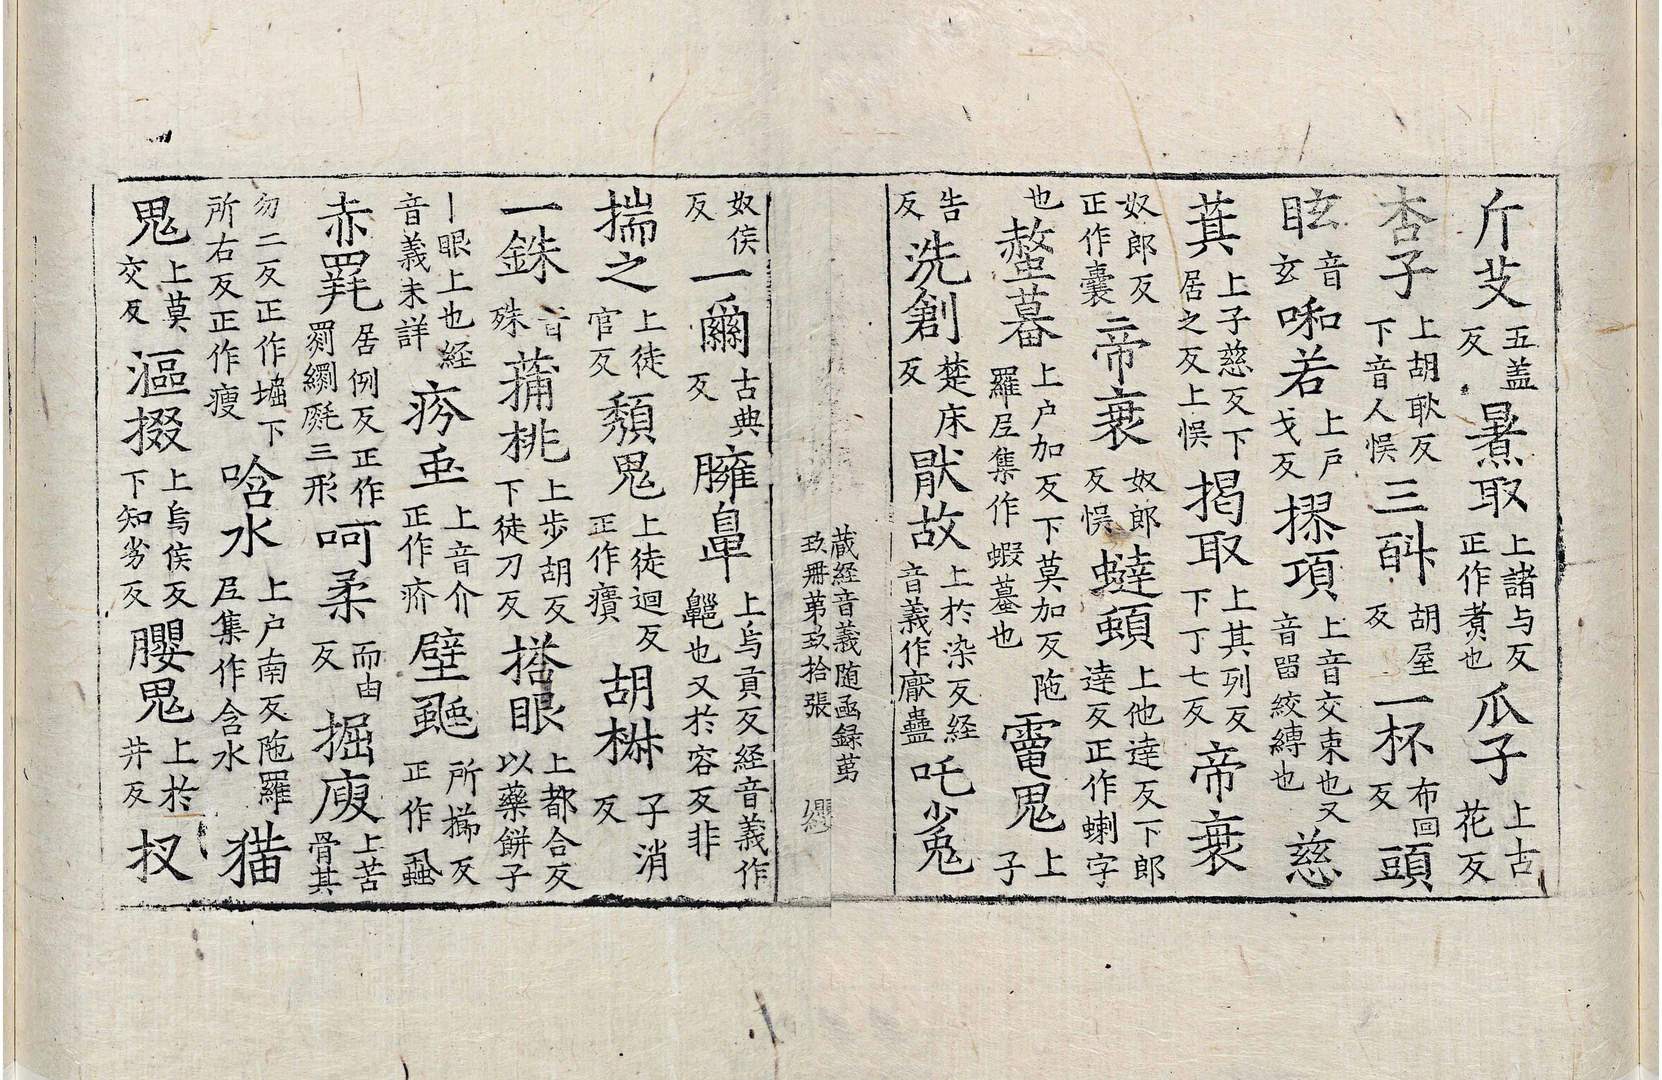 斤芆五盖反暑取上諸与反正作煮也瓜子上古花反
杏子上胡耿反下音人悮三㪷胡屋反一杯布回反頭
眩音玄啝若上戸戈反摎項上音交束也又音畱絞縛也慈
萁上子慈反下居之反上悮揭取上其列反下丁七反帝衰
奴郎反正作囊帝衰奴郎反悮蟽䫙上他達反下郎達反正作蝲字
也螯蟇上户加反下莫加反陁羅尼集作蝦蟇也䨓鬼上子
告反洗創楚床反猒故上扵染反経音義作厭蠱吒㝹
蔵経音義随函録苐
玖冊苐玖拾張 纓
奴侯反一𤔤古典反臃鼻上烏貢反経音義作齆也又扵容反非
揣之上徒官反頽鬼上徒迴反正作㿉胡㮈子消反
一銖音殊蒱桃上步胡反下徒刀反搭眼上都合反以藥餅子
丨眼上也経音義未詳疥𠅘上音介正作疥壁䖝所擳反正作蝨
赤㲱居例反正作罽繝㲱三形呵柔而由反掘廋上苦骨其
勿二反正作堀下所右反正作瘦唅水上户南反陁羅尼集作含水猫
鬼上莫交反漚掇上烏侯反下知劣反䐴鬼上扵井反杈